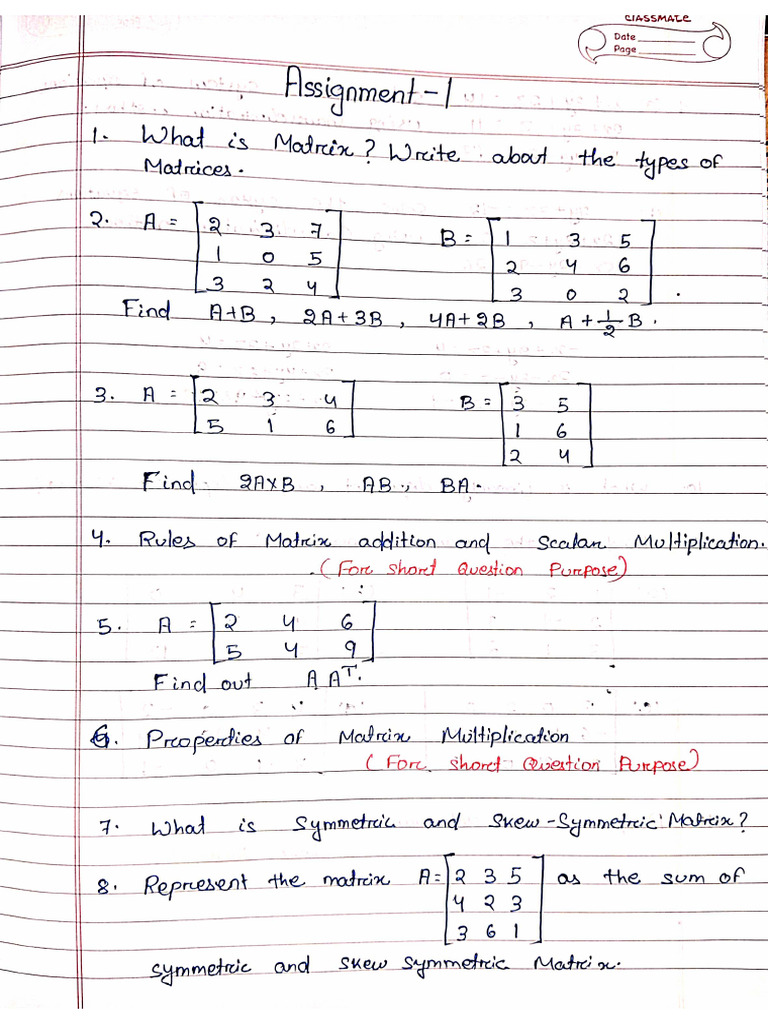 CLASSMATE
Date
Page
Assignment-1
1. What is Matrix? Write about the types of
Matrices.
2. A = [2 3 7 B = [1 3 5
1 0 5 2 4 6
3 2 4] 3 0 2].
Find A+B, 2A+3B, 4A+2B, A+1/2B.
3. A = [2 3 4 B = [3 5
5 1 6] 1 6
2 4]
Find 2A×B, AB, BA.
4. Rules of Matrix addition and Scalar Multiplication.
(For short Question Purpose)
5. A = [2 4 6
5 4 9]
Find out AAᵀ.
6. Properties of Matrix Multiplication
(For short Question Purpose)
7. What is Symmetric and Skew-Symmetric Matrix?
8. Represent the matrix A=[2 3 5 as the sum of
4 2 3
3 6 1]
symmetric and skew symmetric Matrix.